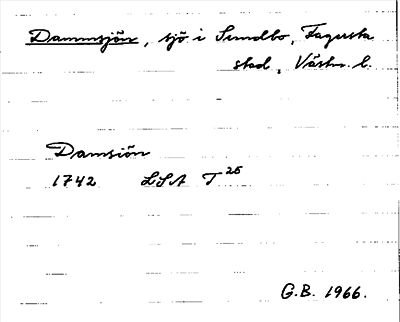 Dammsjön, sjö i Sundbo, Fagersta
stad, Västm. l.
Damsiön
1742 LSA T 25
G.B. 1966.